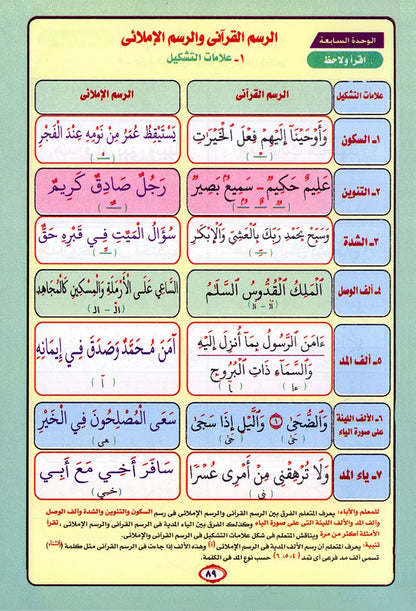 الوحدة السابعة
الرسم القرآنى والرسم الإملائى
اقرأ ولاحظ
١- علامات التشكيل
علامات التشكيل
الرسم القرآنى
الرسم الإملائى
١- السكون
وَأَوْحَيْنَا إِلَيْهِمْ فِعْلَ ٱلْخَيْرَٰتِ
يَسْتَيْقِظُ عُمَرُ مِنْ نَوْمِهِ عِنْدَ الْفَجْرِ
٢- التنوين
عَلِيمٌ حَكِيمٌ - سَمِيعٌۢ بَصِيرٌ
رَجُلٌ صَادِقٌ كَرِيمٌ
٣- الشدة
وَسَبِّحْ بِحَمْدِ رَبِّكَ بِٱلْعَشِىِّ وَٱلْإِبْكَٰرِ
سُؤَالُ الْمَيِّتِ فِي قَبْرِهِ حَقٌّ
٤- ألف الوصل
ٱلْمَلِكُ ٱلْقُدُّوسُ ٱلسَّلَٰمُ
السَّاعِي عَلَى الْأَرْمَلَةِ وَالْمِسْكِينِ كَالْمُجَاهِدِ
٥- ألف المد
ءَامَنَ ٱلرَّسُولُ بِمَآ أُنزِلَ إِلَيْهِ
وَٱلسَّمَآءِ ذَاتِ ٱلْبُرُوجِ
(ءا) (آ)
آمَنَ مُحَمَّدٌ وَصَدَقَ فِي إِيمَانِهِ
(آ)
٦- الألف اللينة
على صورة الياء
وَٱلضُّحَىٰ ١ وَٱلَّيْلِ إِذَا سَجَىٰ
سَعَى الْمُصْلِحُونَ فِي الْخَيْرِ
(عى)
٧- ياء المد
وَلَا تُرْهِقْنِى مِنْ أَمْرِى عُسْرًا
(نى)
سَافَرَ أَخِي مَعَ أَبِي
(خي)
للمعلم والأباء: يعرف المتعلم الفرق بين الرسم القرآنى والرسم الإملائى فى رسم السكون والتنوين والشدة وألف الوصل
وألف المد والألف اللينة التى على صورة الياء وكذلك الفرق بين الياء المدية فى الرسم القرآنى والرسم الإملائى ، تقرأ
الأمثلة أكثر من مرة ويناقش المتعلم فى شكل علامات التشكيل فى الرسم القرآنى والرسم الإملائى.
تنبيه: يعرف المتعلم أن رسم الألف المدية فى الرسم الإملائى (آ) وهذه الألف إذا جاءت فى الرسم القرآنى مثل كلمة
تسمى ألف مد فرعى أى تمد (٤ ، ٥ ، ٦) حسب نوع المد فى الكلمة.
٨٩